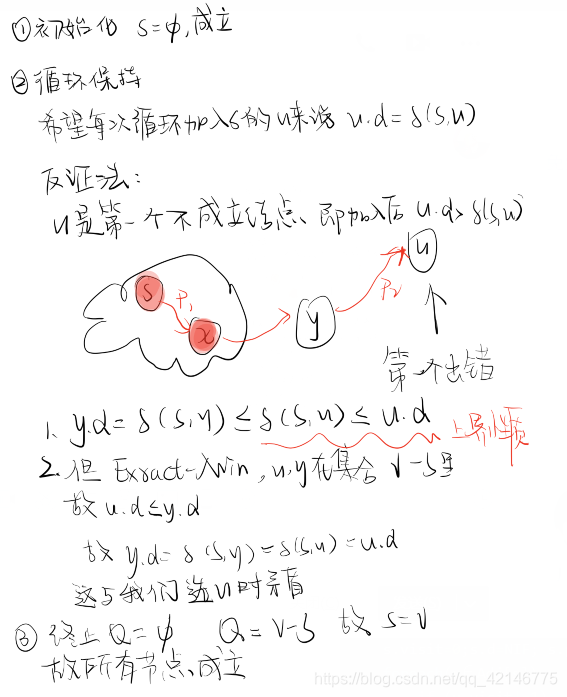 ①初始化 S=φ,成立
②循环保持
希望每次循环加入S的u来说 u.d=δ(S,u)
反证法:
u是第一个不成立结点、即加入后 u.d>δ(s,u)
S
P1
x
y
P2
u
第一个出错
1、y.d=δ(S,y)≤δ(S,u)≤u.d 上界性质
2.但 Exract-Min,u,y在集合 V-S里
故 u.d≤y.d
故 y.d=δ(S,y)=δ(S,u)=u.d
这与我们选u时矛盾
③ 终止 Q=φ Q=V-S 故 S=V
故所有节点、成立
https://blog.csdn.net/qq_42146775